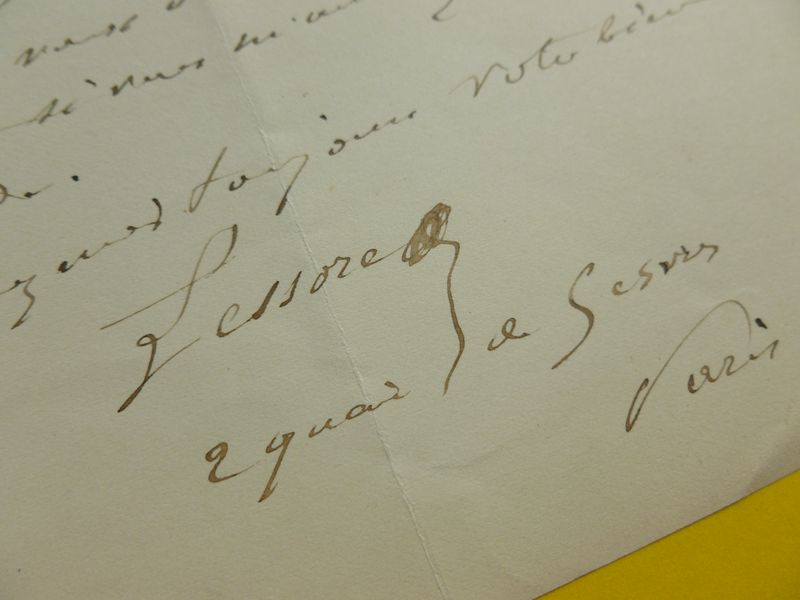 vous
si vous m'a
toujours votre bien
Lessore
2 quai de Gesvres
Paris